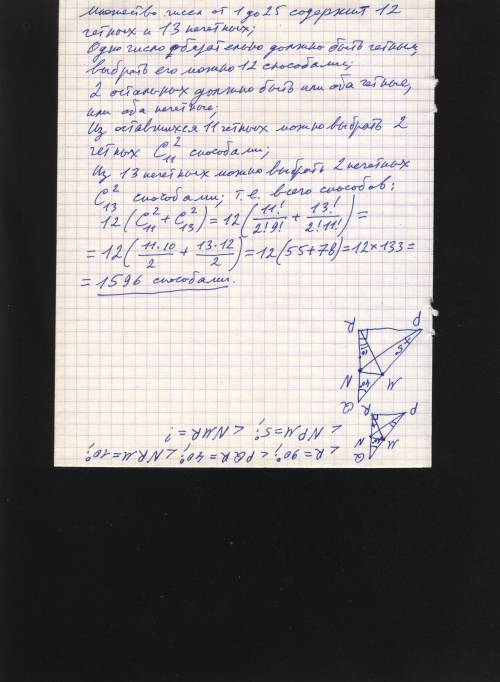 Множество чисел от 1 до 25 содержит 12
четных и 13 нечетных;
Одно число обязательно должно быть четным,
выбрать его можно 12 способами;
2 остальных должно быть или оба четные,
или оба нечетные;
Из оставшихся 11 четных можно выбрать 2
четных C₁₁² способами;
Из 13 нечетных можно выбрать 2 нечетных
C₁₃² способами; т.е. всего способов:
12(C₁₁² + C₁₃²) = 12(11!/2!9! + 13!/2!11!) =
= 12(11·10/2 + 13·12/2) = 12(55+78) = 12×133 =
= 1596 способами.
< R = 90°; < PQR = 40°; < NRM = 10°;
< NPM = 5°; < NMR = ?
Q
N
M
R
P
Q
40°
N
M
10°
5°
R
P